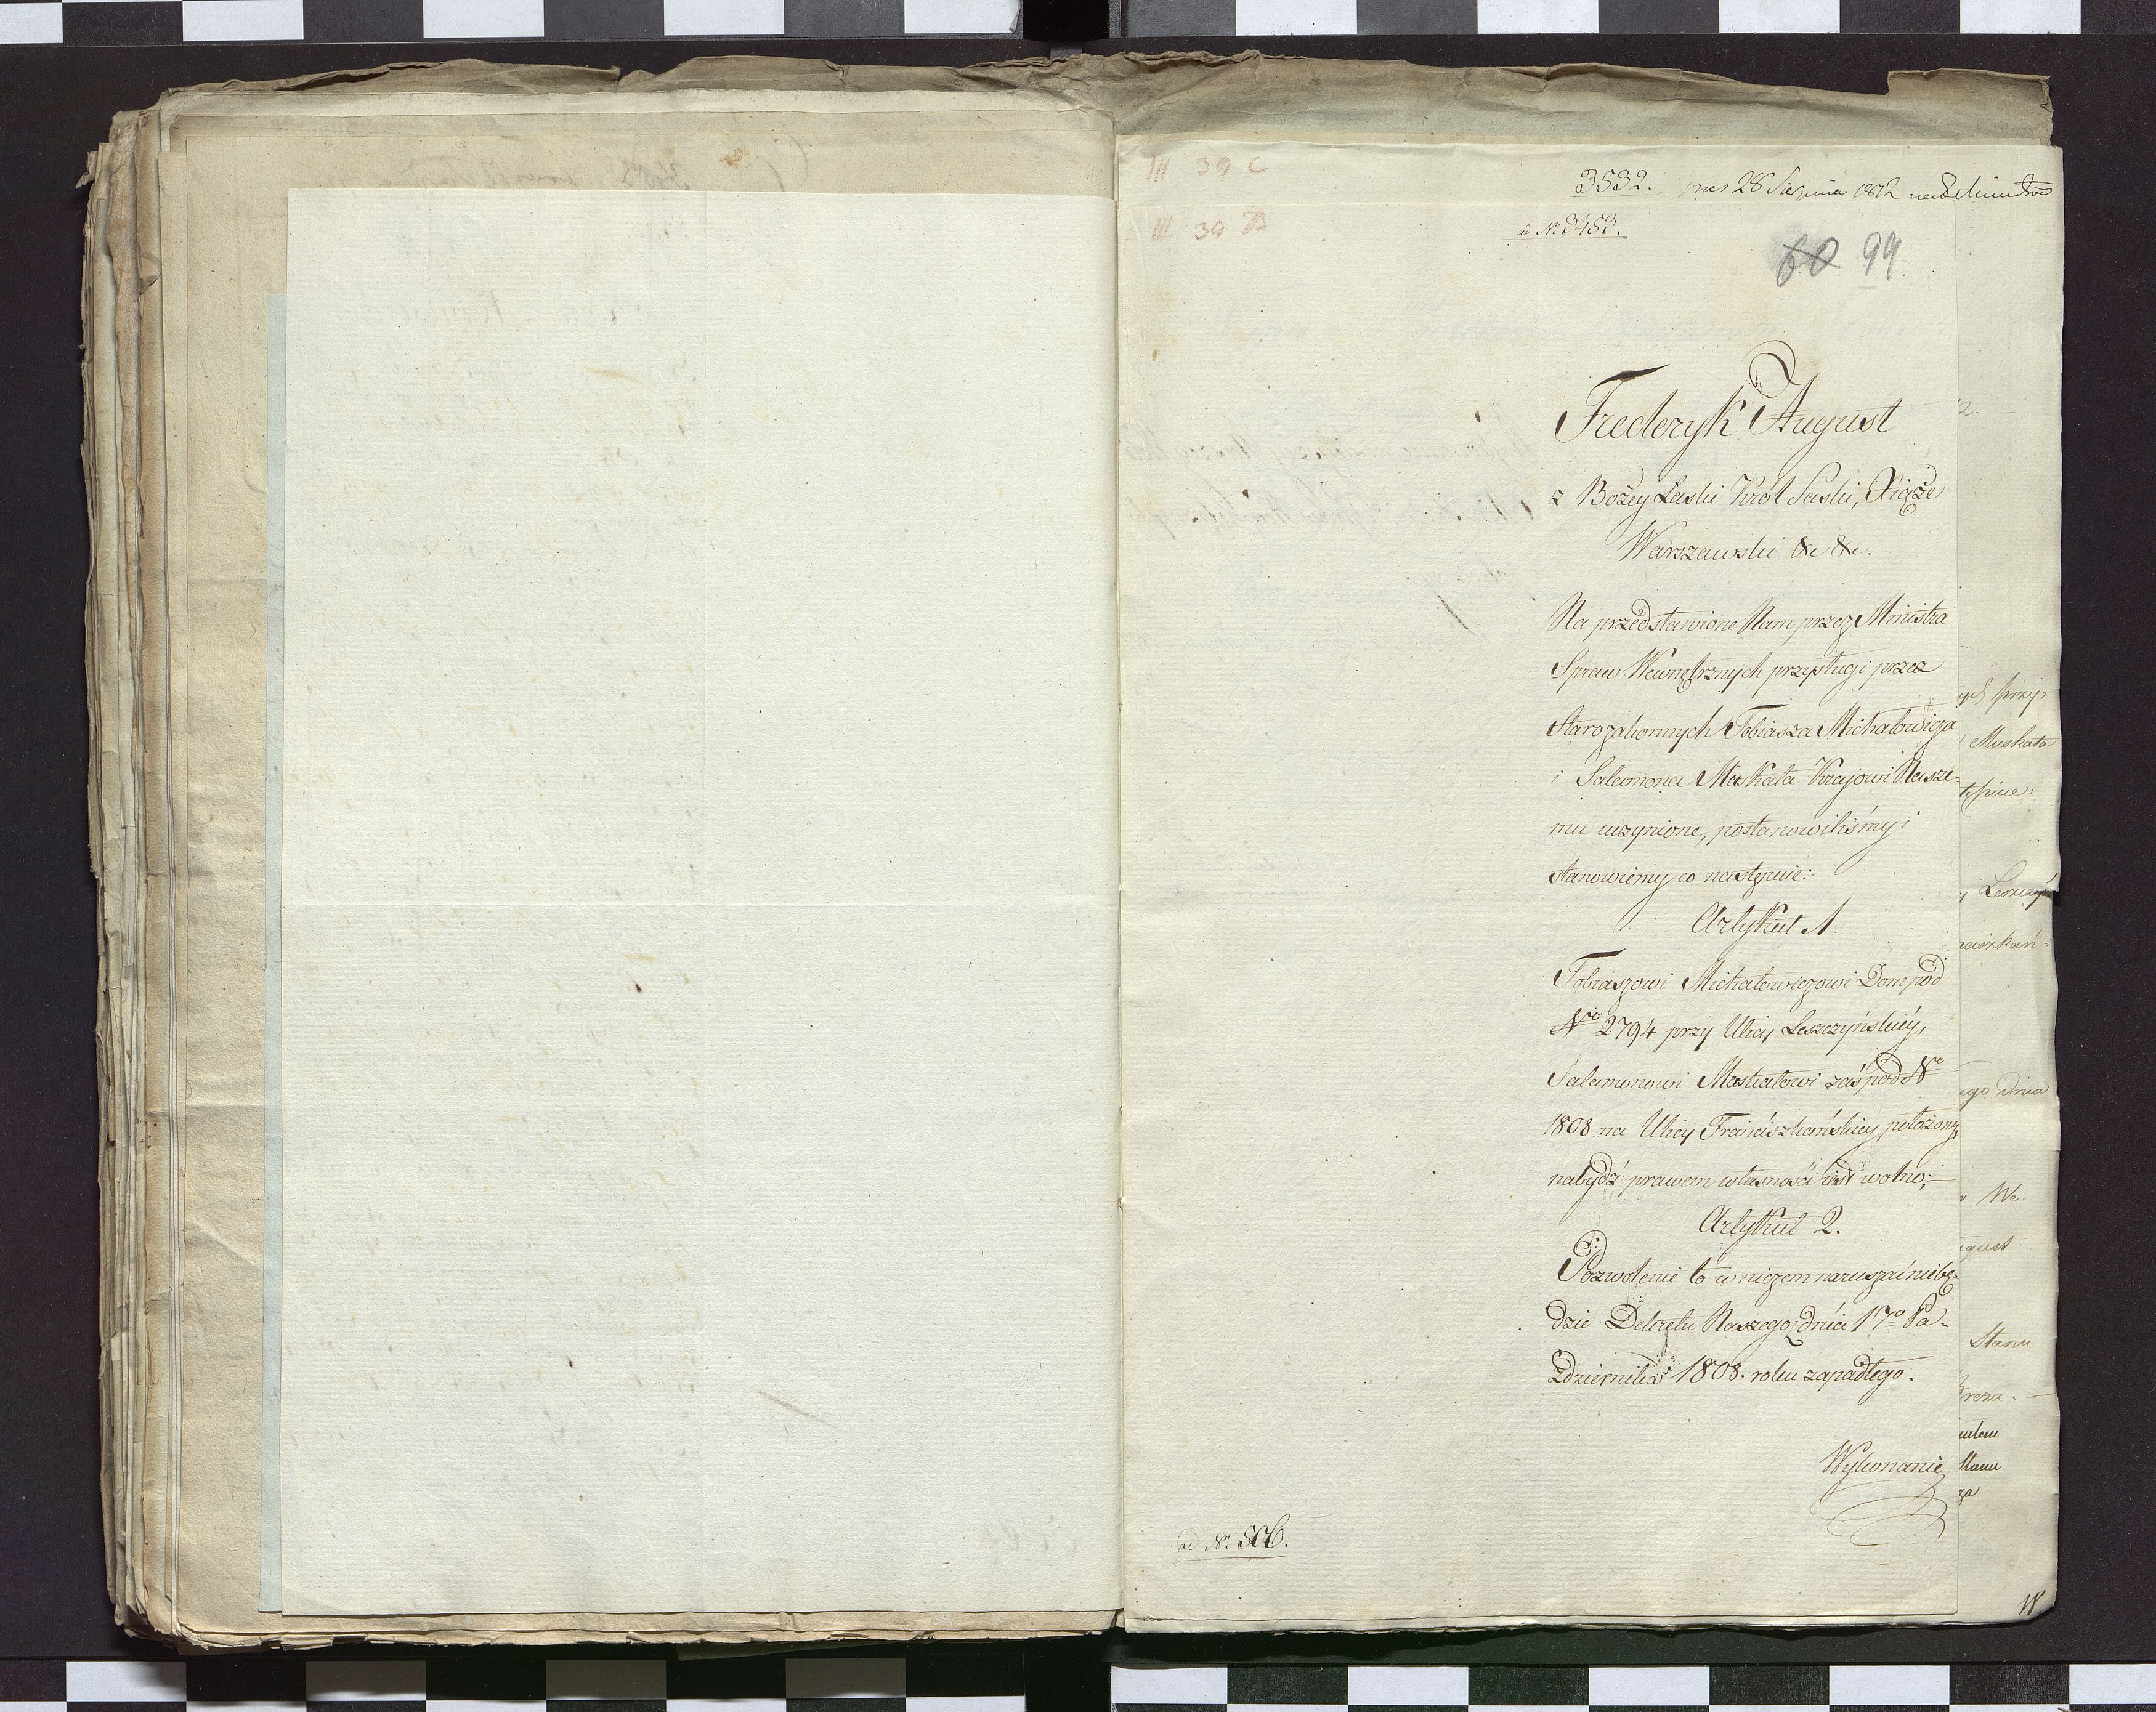 III 39 c
3532. prez 28 Sierpnia 1812
III 39 B
ad No 3453.
60 99
Frederyk August
z Bożey Łaski Król Saski, Xiąże
Warszawski &c &c.
Na przedstawione Nam przez Ministra
Spraw Wewnętrznych przysługi przez
Starozakonnych Tobiasza Michałowicza
i Salamona Maskata Krajowi Nasze-
mu uczynione, postanowiliśmy i
stanowiemy co następuie:
Artykuł 1.
Tobiaszowi Michałowiczowi Dom pod
Nro 2794 przy Ulicy Leszczyńskiéy,
Salamonowi Maskatowi zaś pod No
1808 na Ulicy Franciszkańskiey położony,
nabydź prawem własności iest wolno;—
Artykuł 2.
Pozwolenie to w niczem naruszać niebę-
dzie Dekretu Naszego dnia 17o Pa-
ździernika 1808. roku zapadłego.
Wykonanie
ad No. 506.
przy-
Muskata
Leszczyń
ciszkań-
ego dnia
We.
gust
Stanu
reza. —
Stanu
za
W